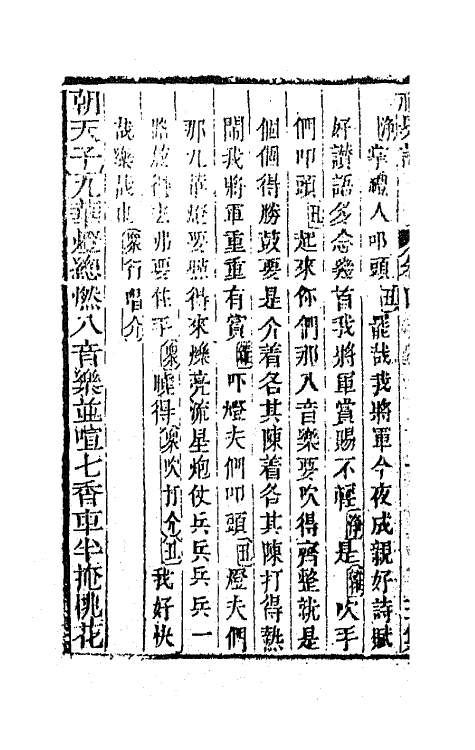 掌禮人叩頭丑罷哉我將軍今夜成親好詩賦
好讚語多念幾首我將軍賞賜不輕淨是雜吹手
們叩頭丑起來你們那八音樂要吹得齊整就是
個個得勝鼓要是介着各其陳着各其陳打得熱
鬧我將軍重重有賞雜吓燈夫們叩頭丑燈夫們
那九華燈要照得來爍亮流星炮仗乒乒乓乓一
得去那要住手衆曉得衆吹打介丑我好快
哉樂哉也衆行唱介
朝天子九華燈總燃八音樂並喧七香車半掩桃花